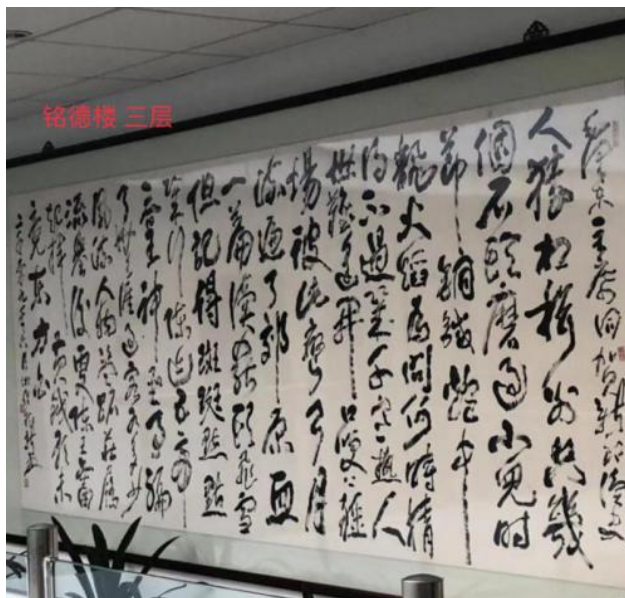 铭德楼 三层
毛澤東主席詞賀新郎讀史
人猿相揖别只幾
個石頭磨過小兒時
節銅鐵爐中
翻火焰為問何時猜
得不過幾千寒熱人
世難逢開口笑上疆
場彼此彎弓月
流遍了郊原血
一篇讀罷頭飛雪
但記得斑斑點點
幾行陳迹五帝
三皇神聖事騙
了無涯過客有多少
風流人物盜跖莊屩
流譽後更陳王奮
起揮黃鉞歌未
竟東方白